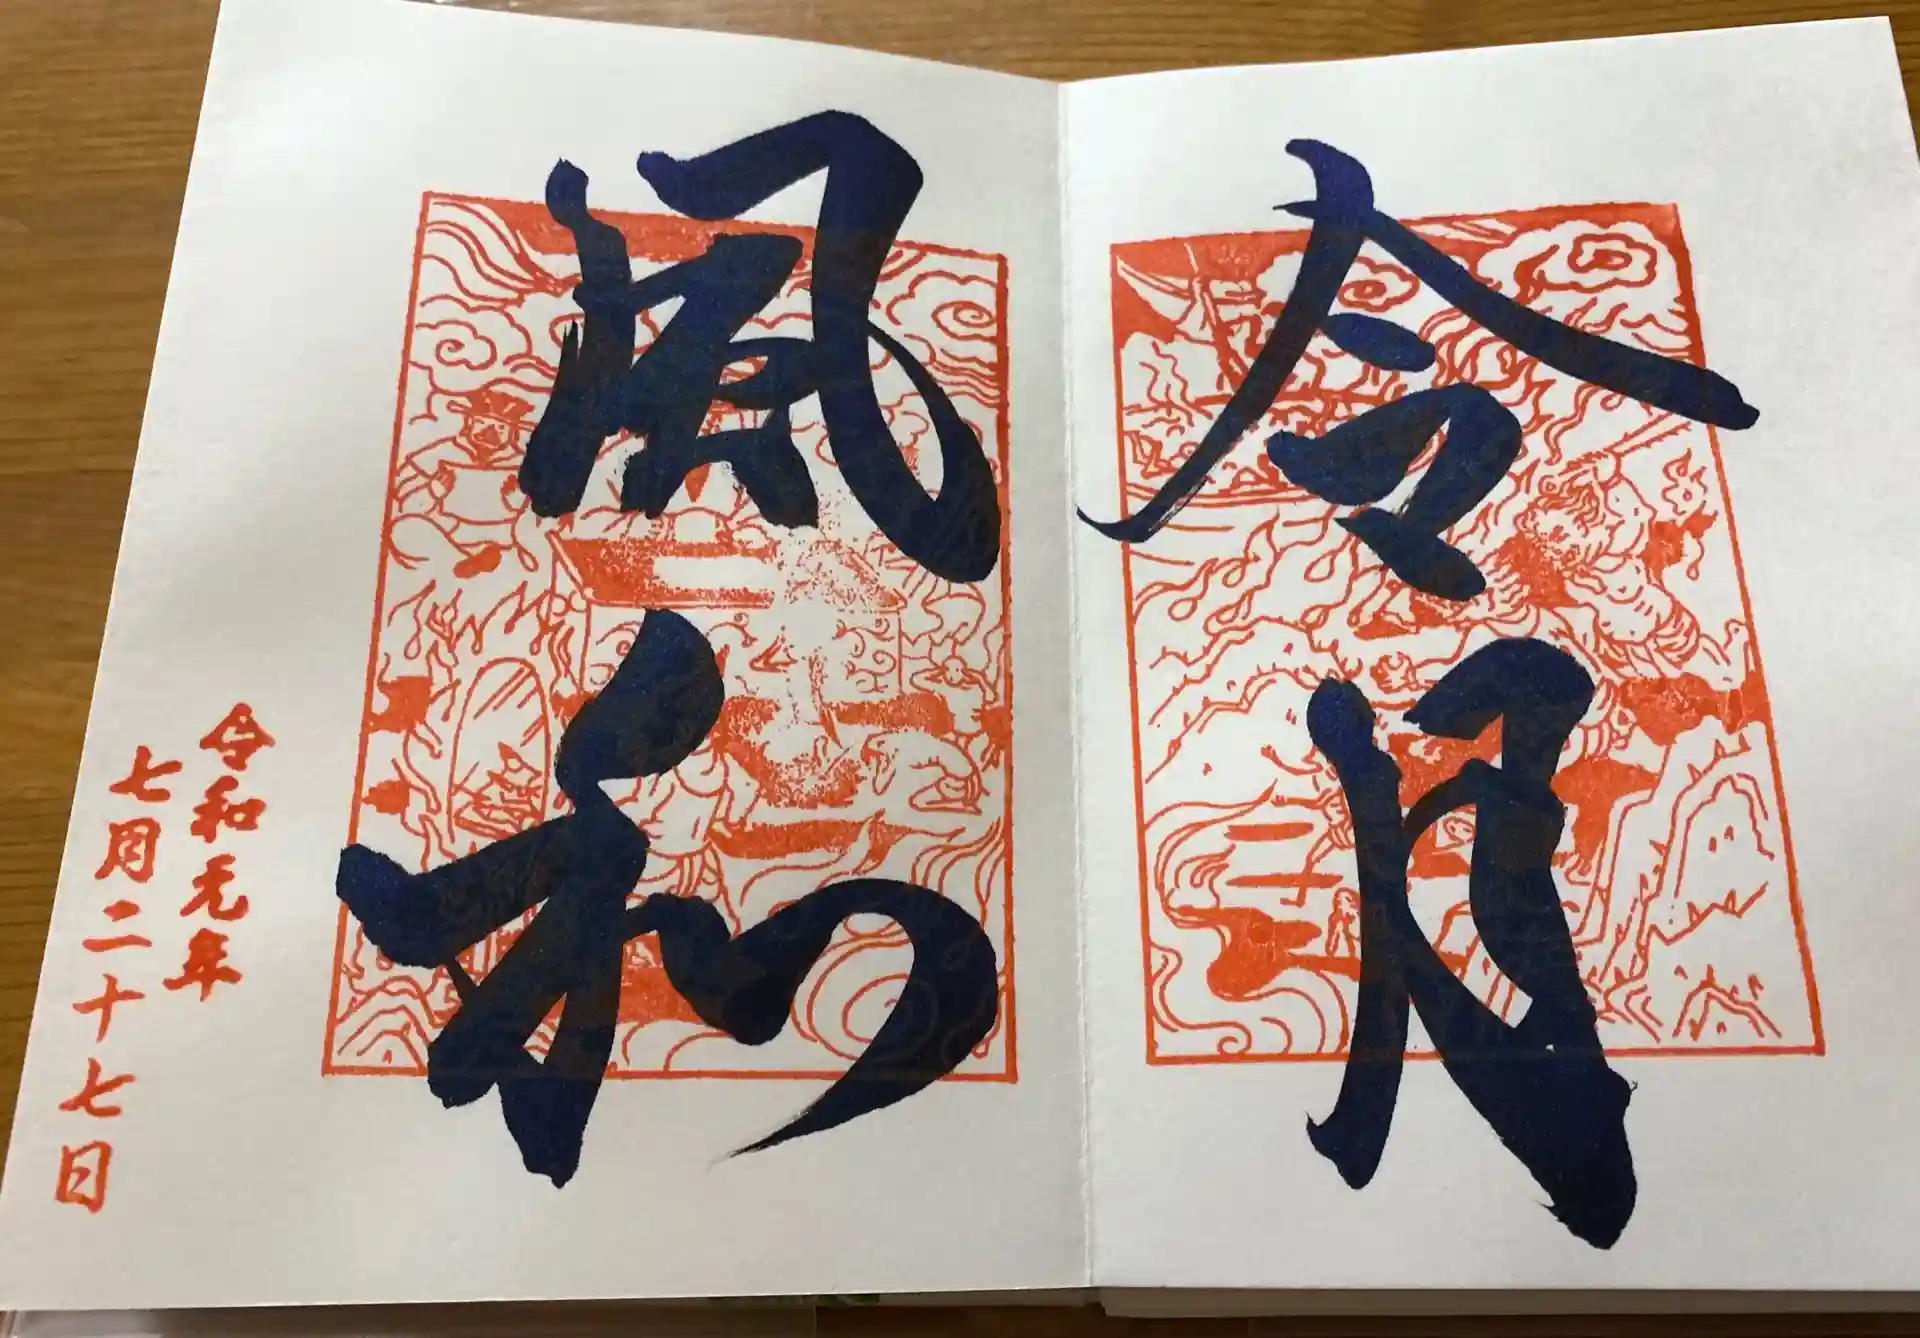 令月
風和
令和元年
七月二十七日